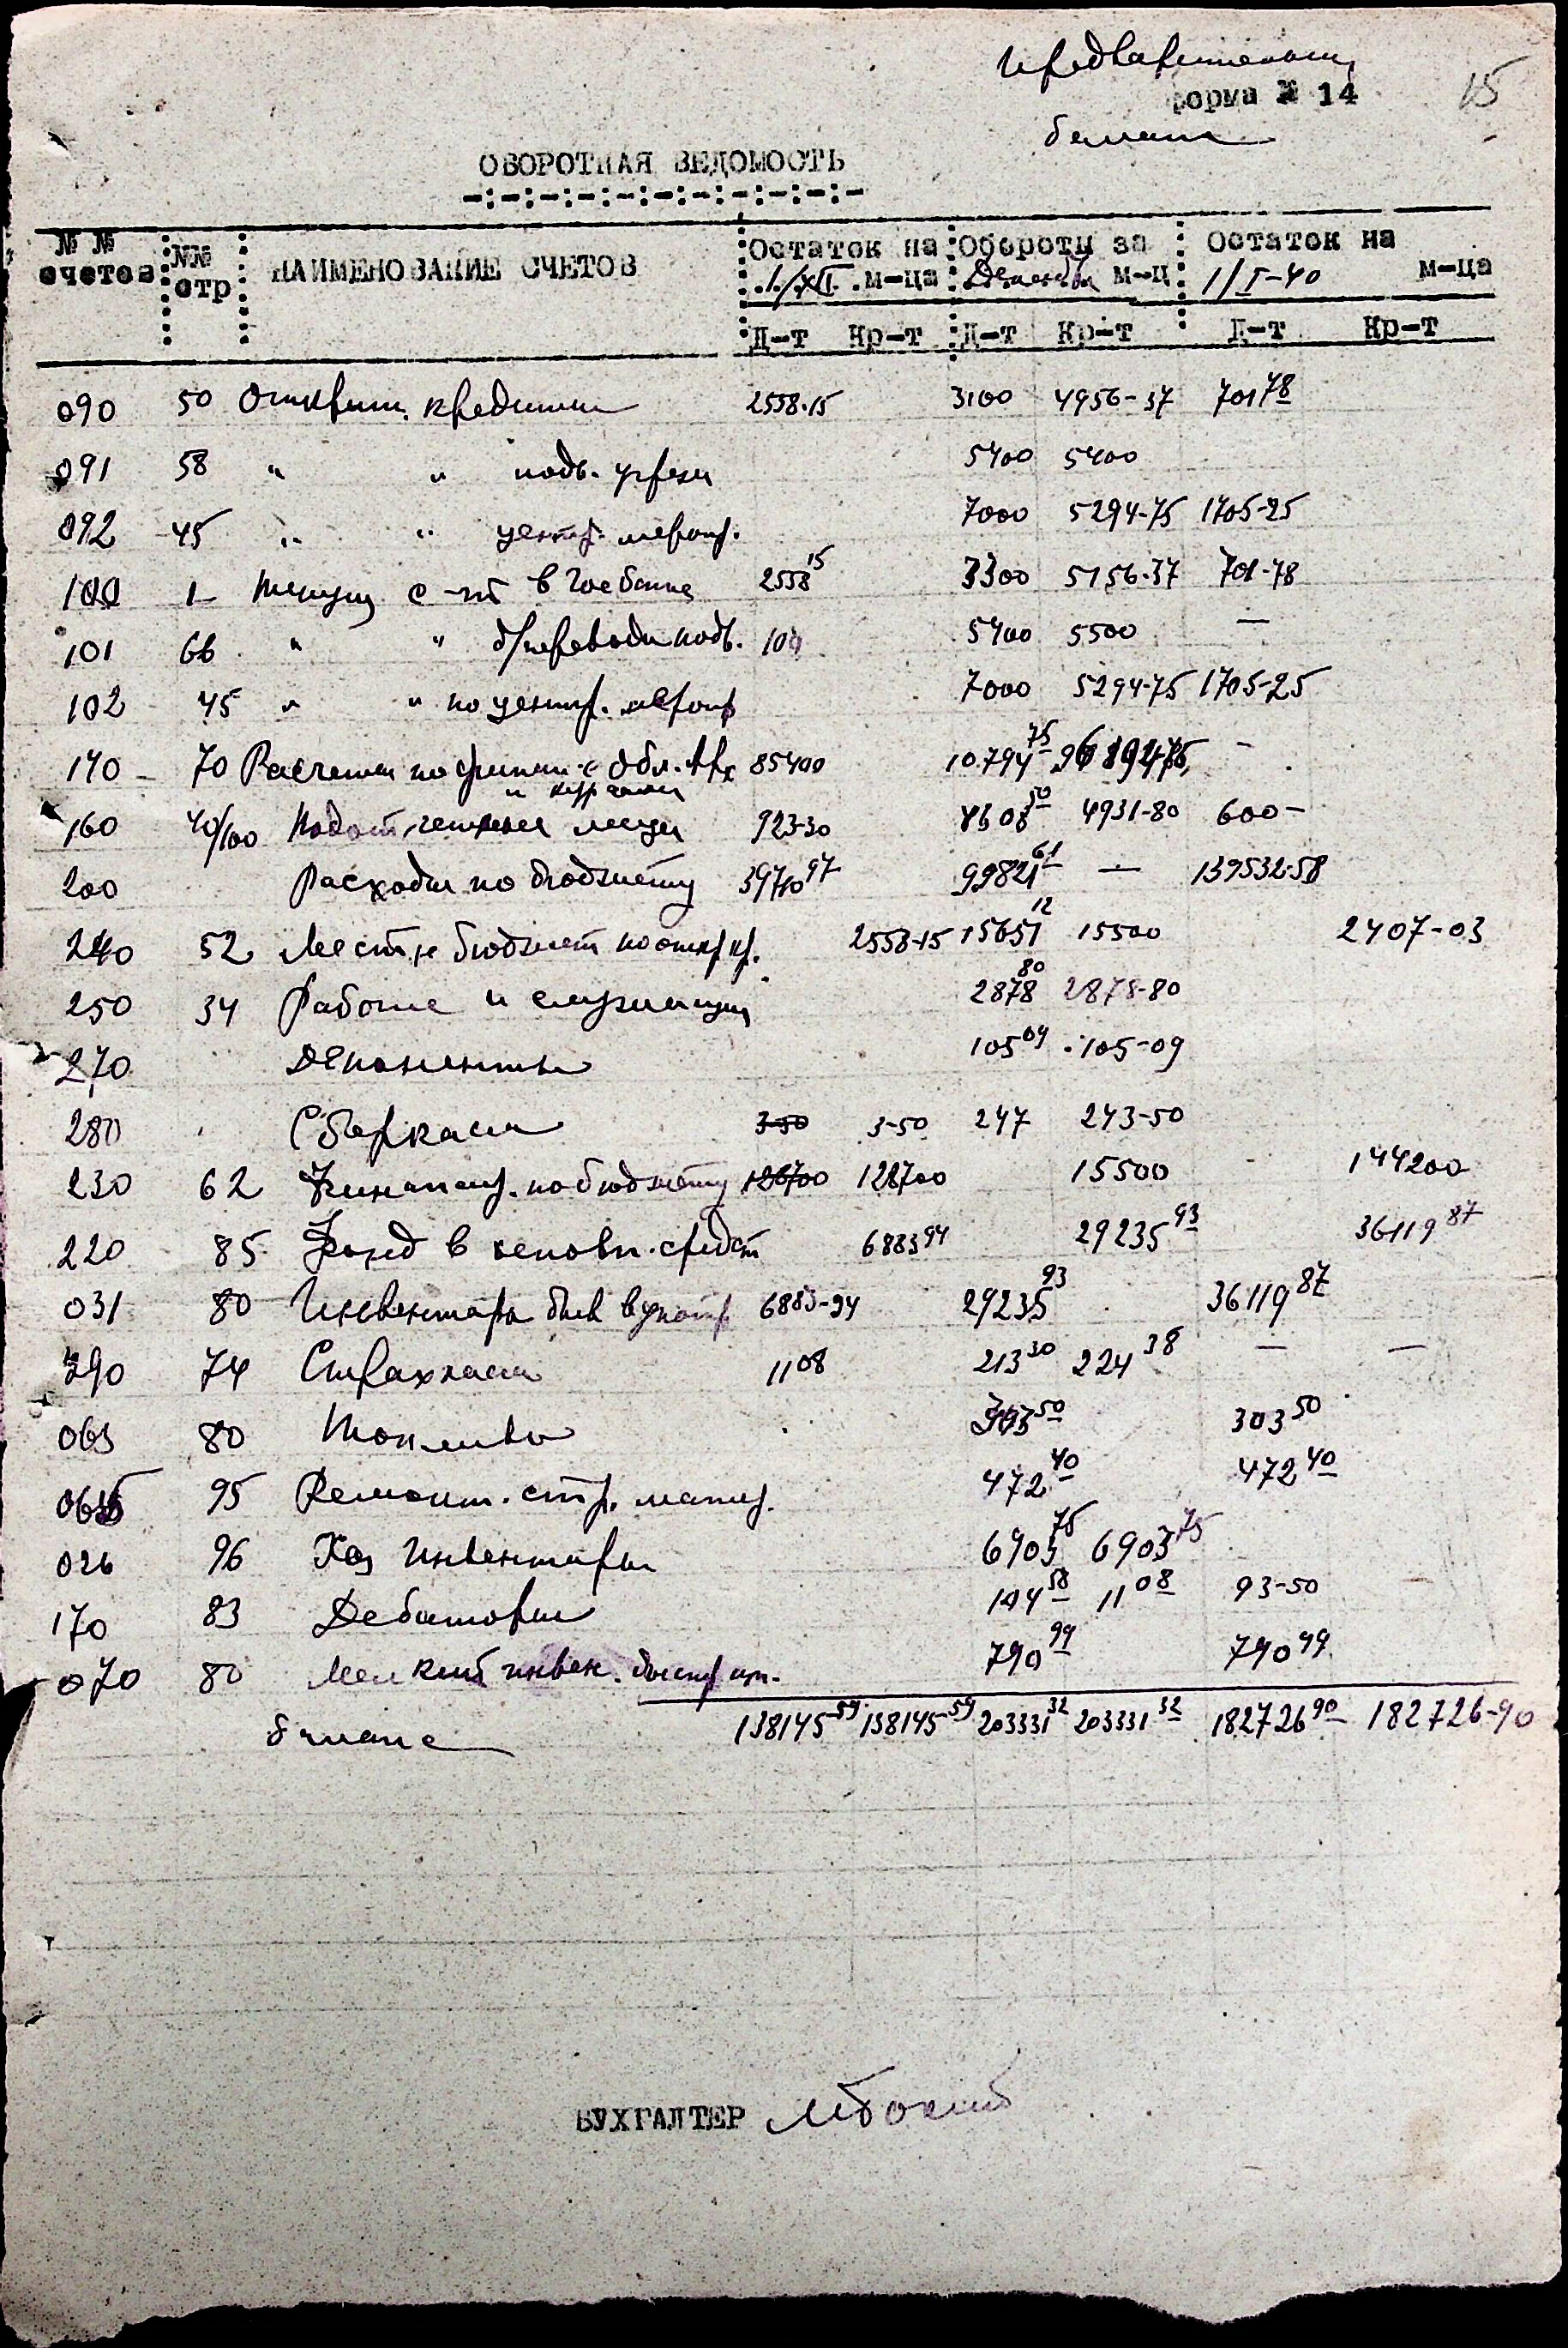 Предварительный
форма № 14
15
баланс
ОБОРОТНАЯ ВЕДОМОСТЬ
№ № счетов №№ стр НАИМЕНОВАНИЕ СЧЕТОВ Остаток на 1/XII м-ца Обороты за Декабрь м-ц Остаток на 1/I-40 м-ца
Д-т Кр-т Д-т Кр-т Д-т Кр-т
090 50 Открыт. кредиты 2558-15 3100 4956-37 701 78
091 58 " " подв. 5400 5400
092 45 " " центр. мероп. 7000 5294-75 1705-25
100 1 Текущ с-т в Госбанке 2558 15 3300 5156-37 701-78
101 66 " " д/переводы подв. 100 5400 5500 —
102 45 " " по центр. мероп 7000 5294-75 1705-25
140 70 Расчеты по финан. с Обл. 85400 10794 75 96194 75 -
160 40/100 Подотчетные лица 923-30 4608 50 4931-80 600-
200 Расходы по бюджету 39710 97 99821 61 — 139532-58
240 52 Местн бюджет по откр кр. 2558-15 15651 12 15500 2407-03
250 34 Рабочие и служащие 2878 80 2878-80
270 Депоненты 105 09 105-09
280 Сберкасса 3-50 3-50 247 243-50
230 62 Финансир. по бюджету 128700 128700 15500 144200
220 85 Фонд в основн. средст 6883 94 29235 93 36119 87
031 80 Инвентарь 6883-94 29235 93 36119 87
290 74 Страхкасса 11 08 213 30 224 38 — —
063 80 Топливо 303 50 303 50
065 95 Ремонт. стр. матер. 472 40 472 40
026 96 Хоз Инвентарь 6903 75 6903 75
170 83 Дебиторы 104 58 11 08 93-50
070 80 Мелкий инвен. 790 99 790 99
баланс 138145-59 138145-59 203331 32 203331 32 182726 90 182726-90
БУХГАЛТЕР